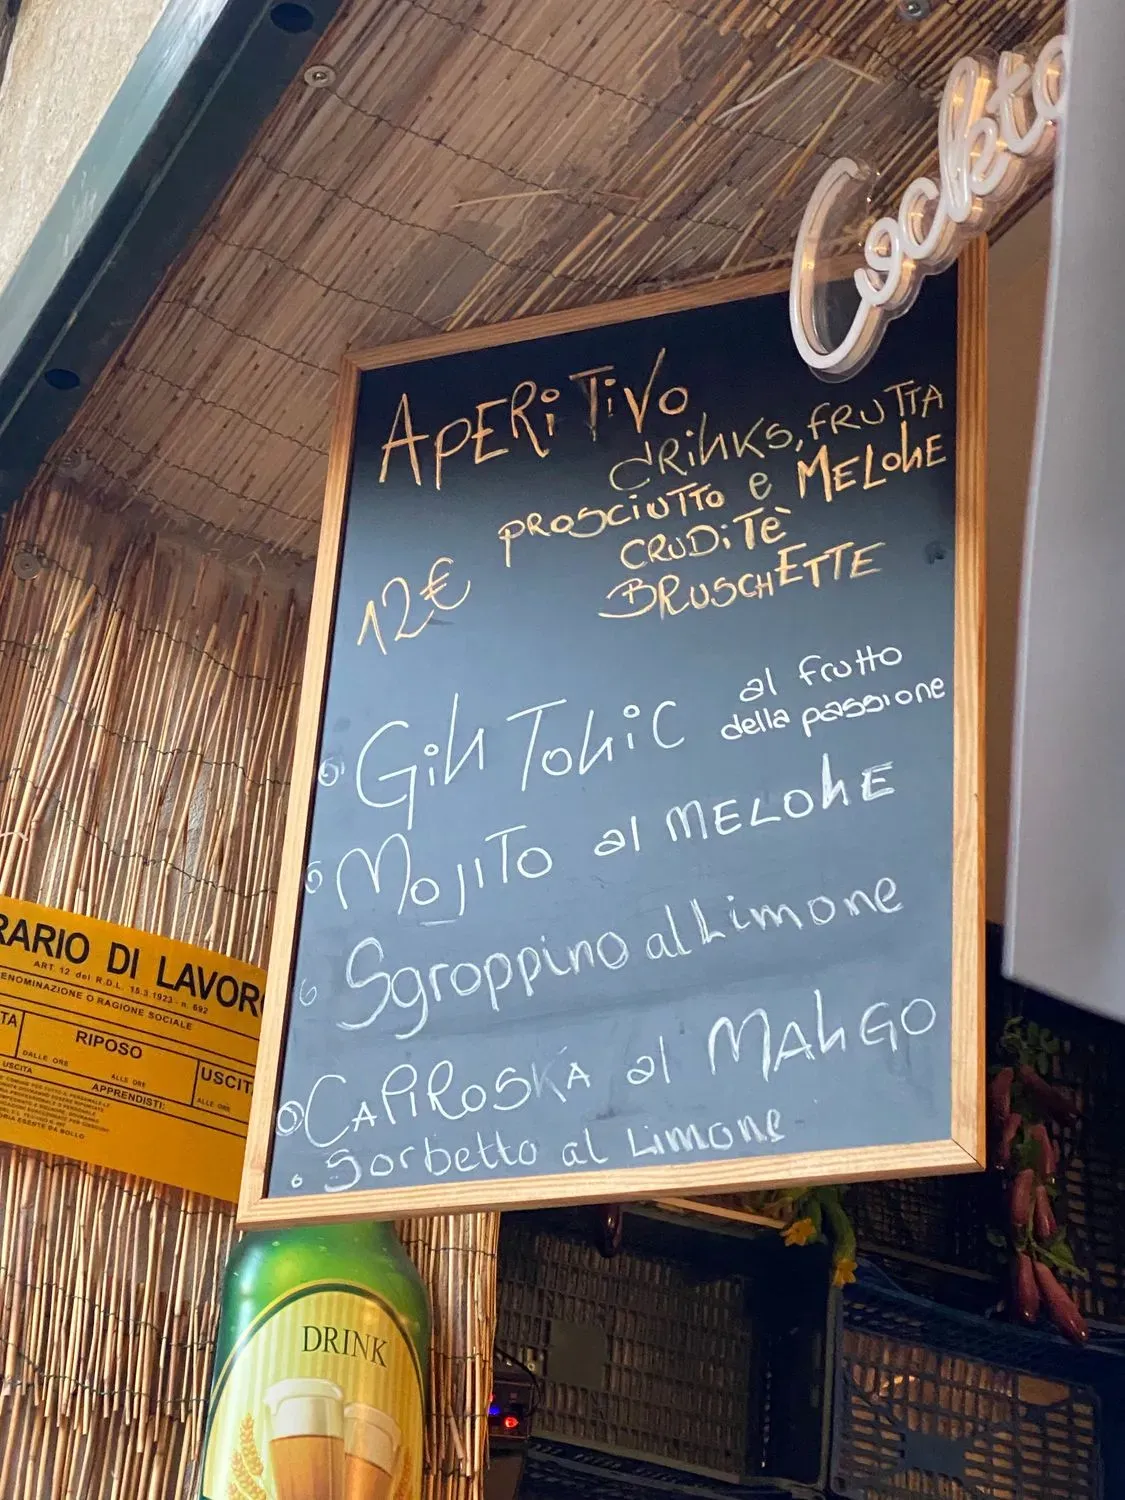 Cockta
APERiTivo
dRiNKS, fRUTTA
PROSCiUTTO e MELONE
CRUDiTè
12€
BRUSCHETTE
Gin Tonic al frutto
della passione
Mojito al MELONE
Sgroppino al Limone
CAPiROSKA al MANGO
Sorbetto al Limone
RARIO DI LAVOR
ART. 12 del R.D.L. 15.3.1923 - n. 692
ENOMINAZIONE O RAGIONE SOCIALE
TA
RIPOSO
DALLE ORE
ALLE ORE
USCIT
USCITA
APPRENDISTI:
ALLE ORE
DRINK